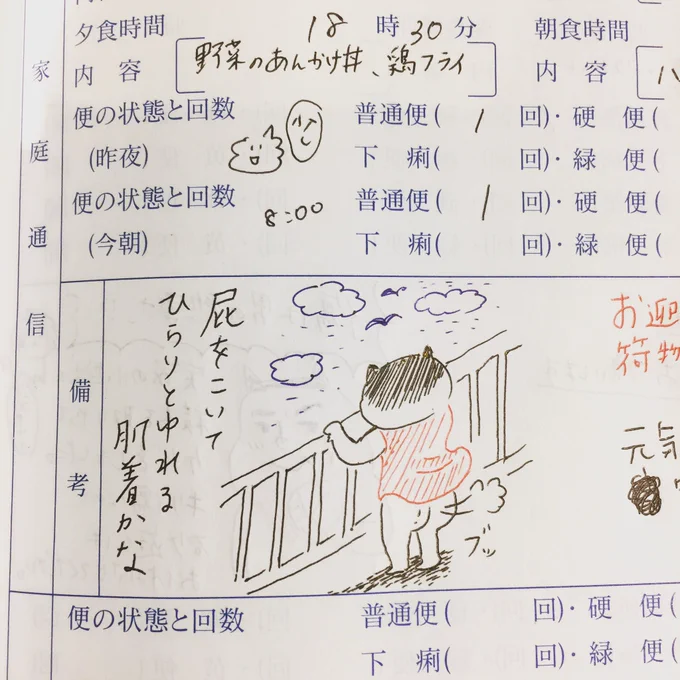 夕食時間 18 時 30 分 朝食時間
内容 野菜のあんかけ丼、鶏フライ 内容 ハ
便の状態と回数 普通便( 1 回)・硬 便(
(昨夜) 下 痢( 回)・緑 便(
便の状態と回数 8:00 普通便( 1 回)・硬 便(
(今朝) 下 痢( 回)・緑 便(
家庭通信
備考
屁をこいて
ひらりとゆれる
肌着かな
ブッ
お迎
荷物
元気
便の状態と回数 普通便( 回)・硬 便(
下 痢( 回)・緑 便(